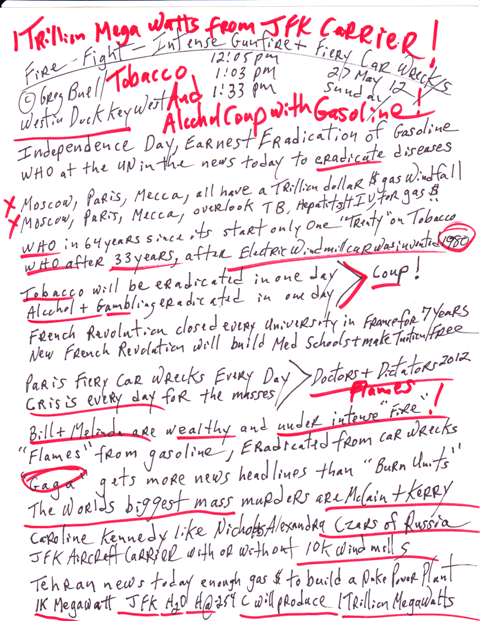 1 Trillion Mega Watts from JFK CARRIER!
Fire-Fight- Intense Gunfire + Fiery Car Wrecks
12:05 pm
© Greg Buell Tobacco 1:03 pm 27 May 12
Westin Duck Key West And 1:33 pm Sunday
Alcohol Coup with Gasoline!
Independence Day, Earnest Eradication of Gasoline
WHO at the UN in the news today to eradicate diseases
X Moscow, Paris, Mecca, all have a Trillion dollar $ gas windfall
X Moscow, Paris, Mecca, overlook TB, Hepatitis HIV for gas $
WHO in 64 years since its start only One "Treaty" on Tobacco
WHO after 33 years, after Electric Windmill car was invented 1980
Tobacco will be eradicated in one day
Alcohol + Gambling eradicated in one day > Coup!
French Revolution closed every University in France for 7 years
New French Revolution will build Med Schools + make Tuition Free
Paris Fiery Car Wrecks Every Day
Crisis every day for the masses > Doctors + Dictators 2012
Flames
Bill + Melinda are wealthy and under intense "Fire"!
"Flames" from gasoline, Eradicated from car wrecks
"Gaga" gets more news headlines than "Burn Units"
The Worlds biggest mass murders are McCain + Kerry
Caroline Kennedy like Nicholas Alexandra Czars of Russia
JFK Aircraft Carrier with or without 10K Windmills
Tehran news today enough gas $ to build a Nuke Power Plant
1K Megawatt JFK H2O H@-254 C will produce 1 Trillion Megawatts